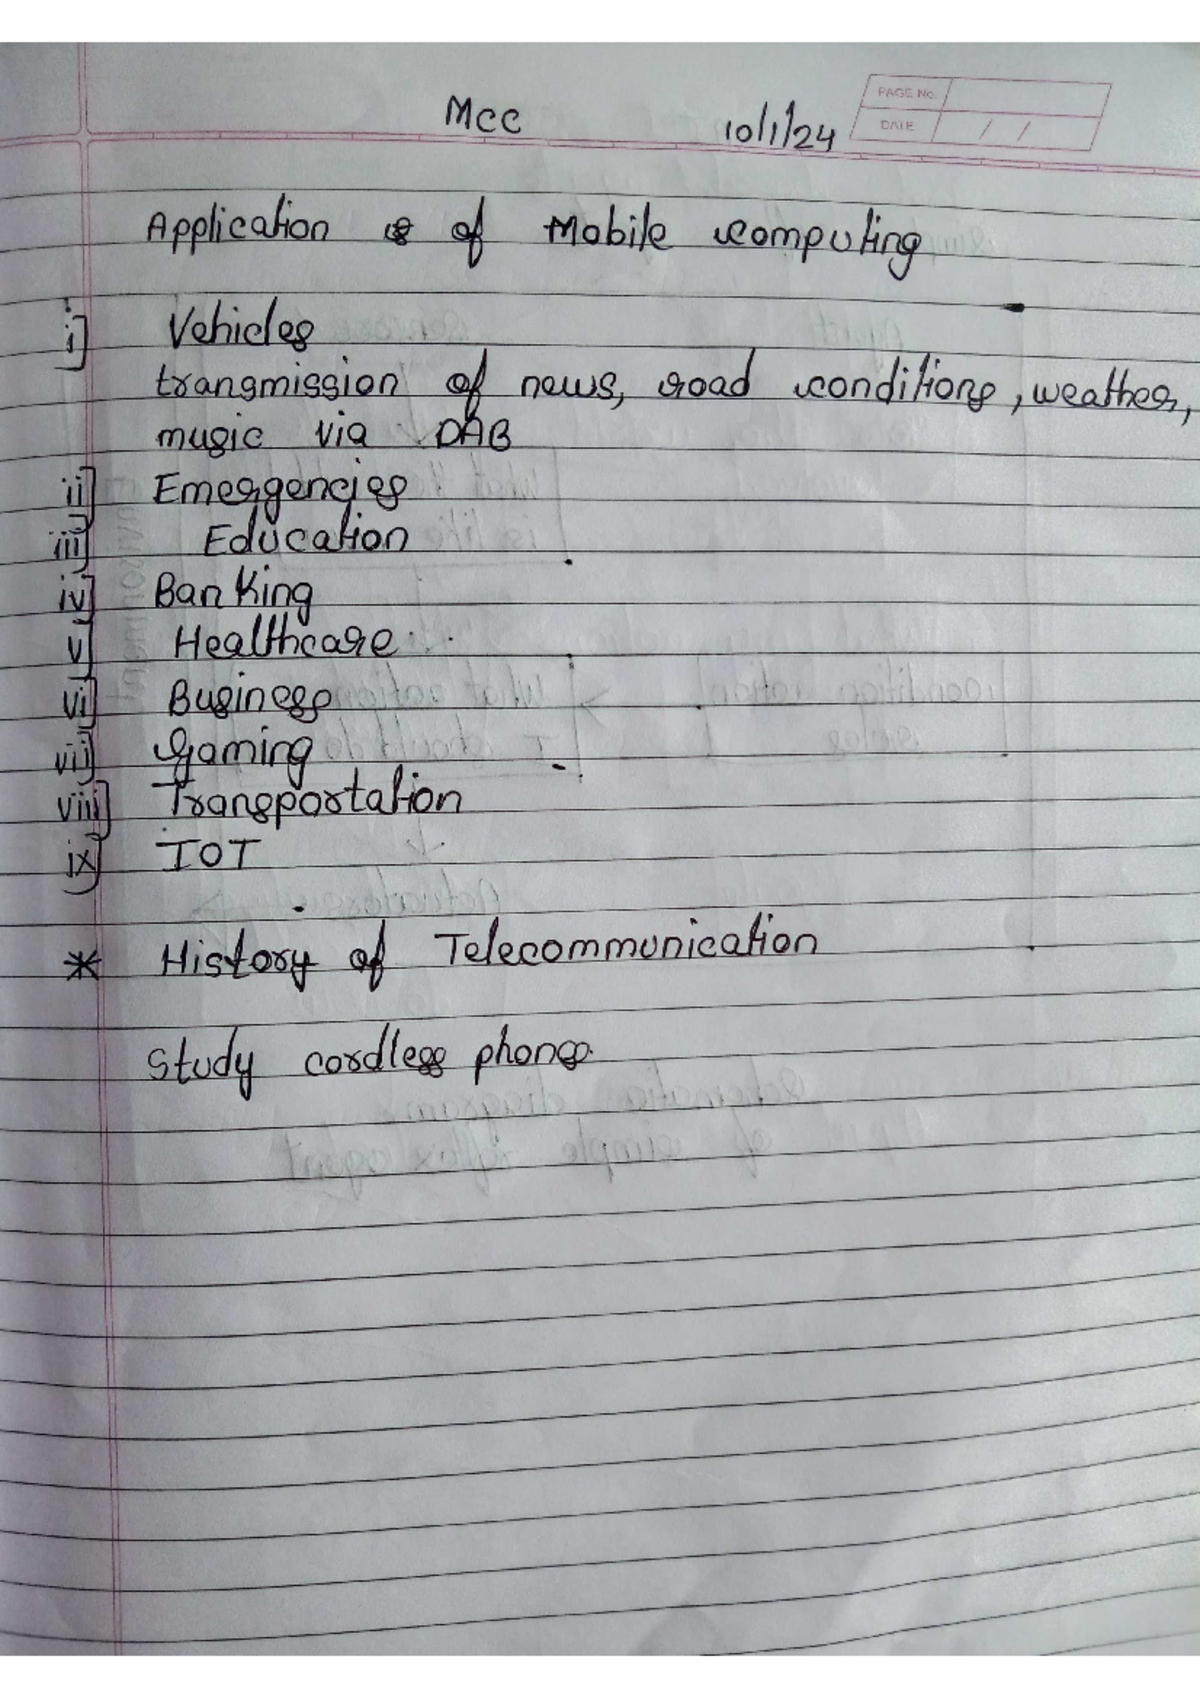 Mcc 10/1/24
PAGE No.
DATE / /
Application of Mobile computing
i] Vehicles
transmission of news, road conditions, weather,
music via DAB
ii] Emergencies
iii] Education
iv] Banking
v] Healthcare
vi] Business
vii] Gaming
viii] Transportation
ix] IOT
* History of Telecommunication
Study cordless phones.